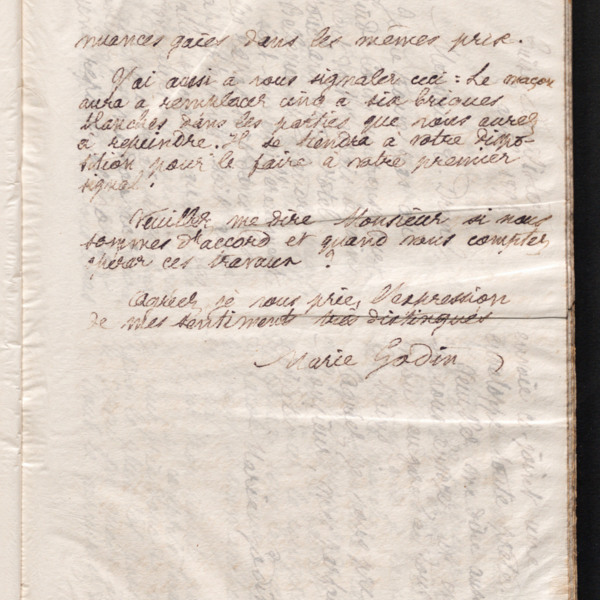 nuances gaies dans les mêmes prix.
J'ai aussi à vous signaler ceci : Le maçon
aura à remplacer cinq à six briques
blanches dans les parties que vous aurez
à repeindre. Il se tiendra à votre dispo-
sition pour le faire à votre premier
signal.
Veuillez me dire Monsieur si nous
sommes d'accord et quand vous comptez
ces travaux ?
Agréez, je vous prie, l'expression
de mes sentiments très distingués
Marie Godin